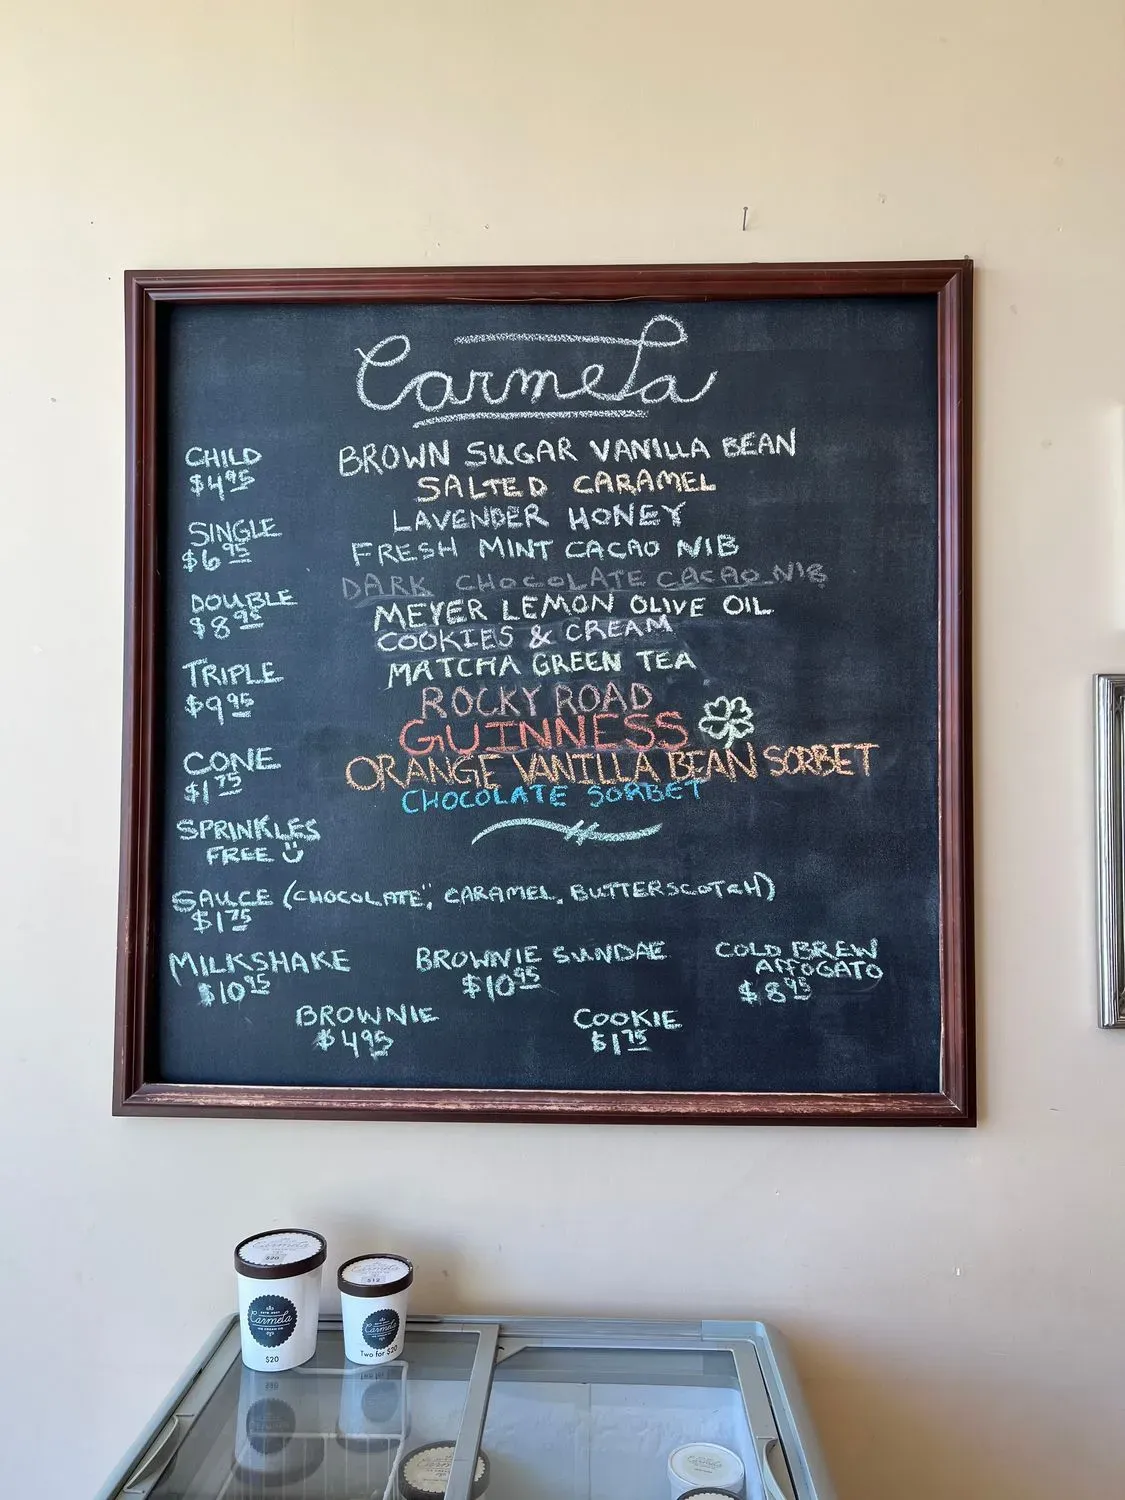 Carmela
CHILD
$4.95
SINGLE
$6.95
DOUBLE
$8.95
TRIPLE
$9.95
CONE
$1.75
SPRINKLES
FREE
BROWN SUGAR VANILLA BEAN
SALTED CARAMEL
LAVENDER HONEY
FRESH MINT CACAO NIB
DARK CHOCOLATE CACAO NIB
MEYER LEMON OLIVE OIL
COOKIES & CREAM
MATCHA GREEN TEA
ROCKY ROAD
GUINNESS
ORANGE VANILLA BEAN SORBET
CHOCOLATE SORBET
SAUCE (CHOCOLATE, CARAMEL, BUTTERSCOTCH)
$1.75
MILKSHAKE
$10.95
BROWNIE SUNDAE
$10.95
COLD BREW
AFFOGATO
$8.95
BROWNIE
$4.95
COOKIE
$1.75
Carmela
$20
Carmela
ICE CREAM CO.
$20
Carmela
$12
Carmela
Two for $20